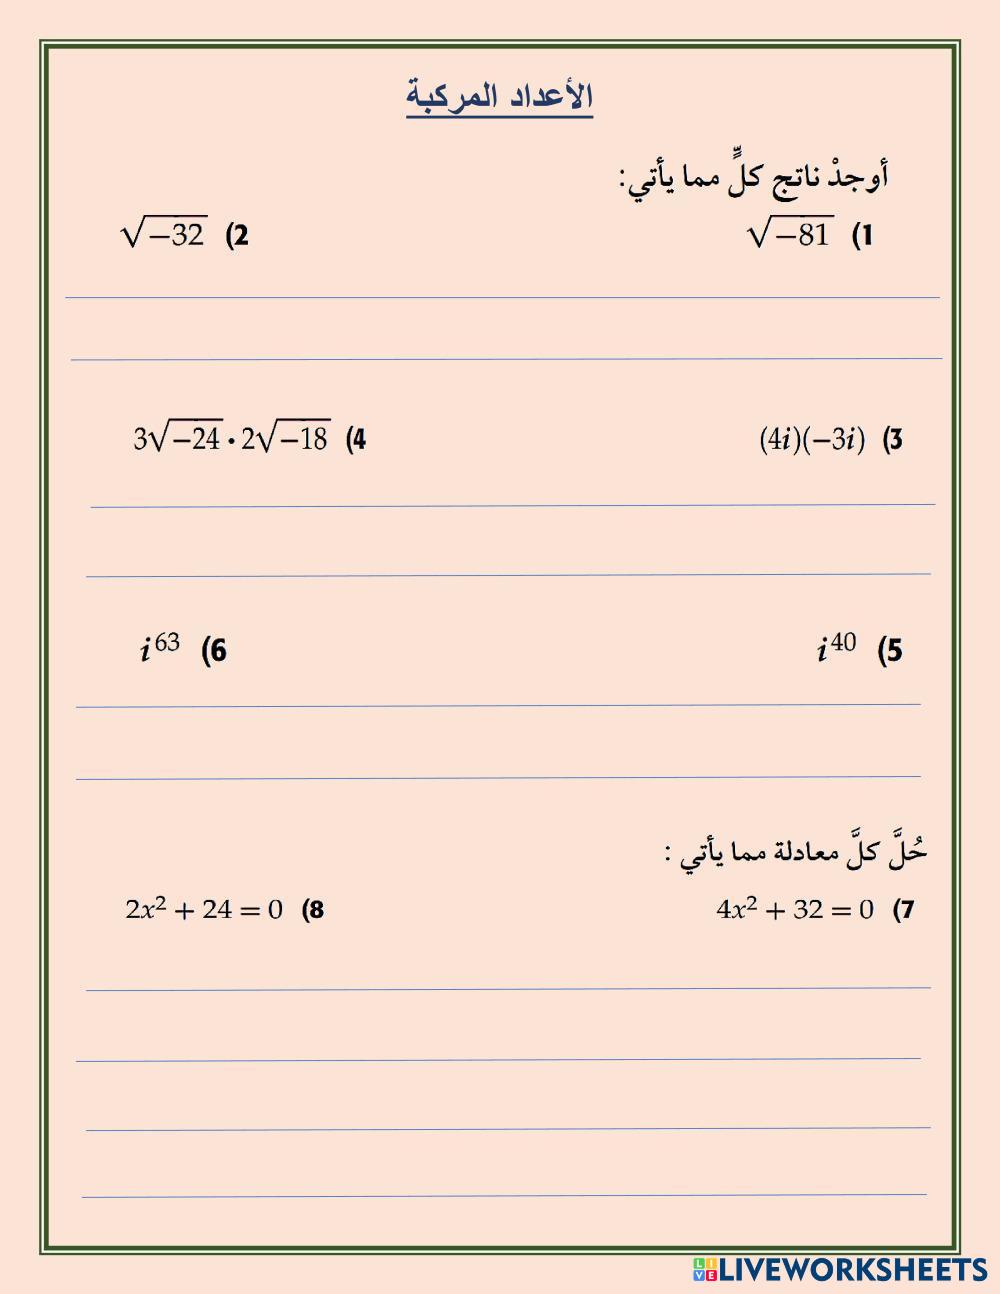 الأعداد المركبة
أوجدْ ناتج كلٍّ مما يأتي:
(1 √−81 (2 √−32
(3 (4i)(−3i) (4 3√−24 · 2√−18
(5 i⁴⁰ (6 i⁶³
حُلَّ كلَّ معادلة مما يأتي :
(7 4x² + 32 = 0 (8 2x² + 24 = 0
LIVEWORKSHEETS